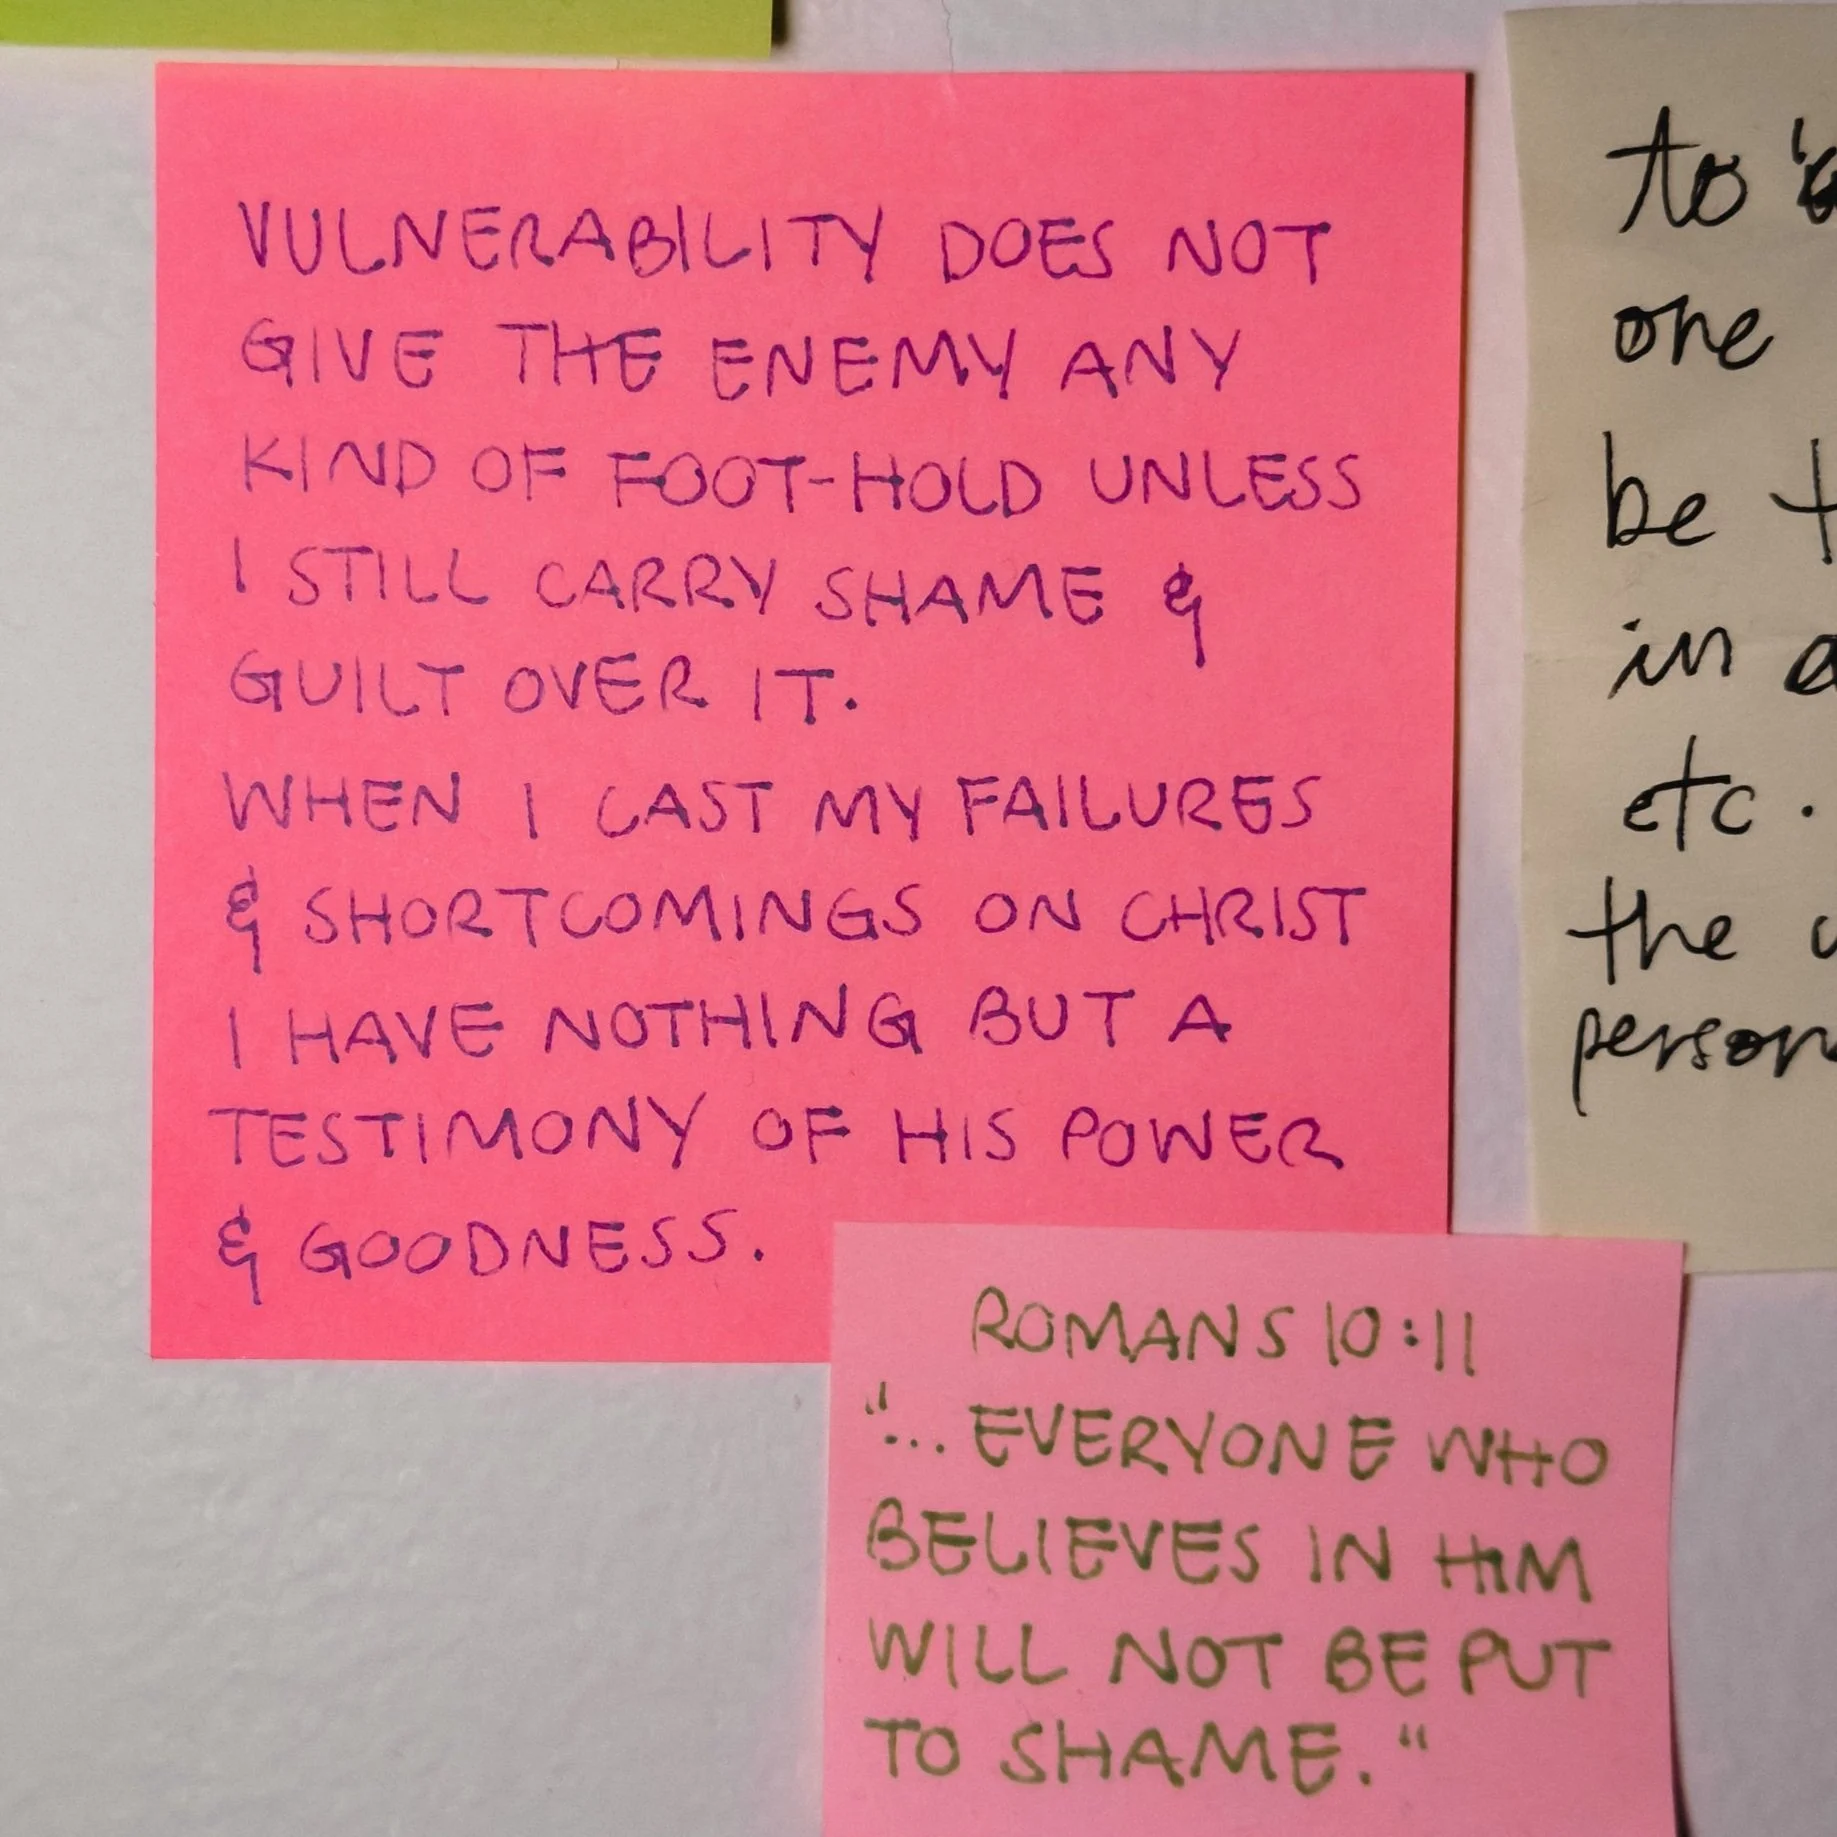 VULNERABILITY DOES NOT
GIVE THE ENEMY ANY
KIND OF FOOT-HOLD UNLESS
I STILL CARRY SHAME &
GUILT OVER IT.
WHEN I CAST MY FAILURES
& SHORTCOMINGS ON CHRIST
I HAVE NOTHING BUT A
TESTIMONY OF HIS POWER
& GOODNESS.
ROMANS 10:11
"... EVERYONE WHO
BELIEVES IN HIM
WILL NOT BE PUT
TO SHAME."
to
one
be
in
etc.
the
person